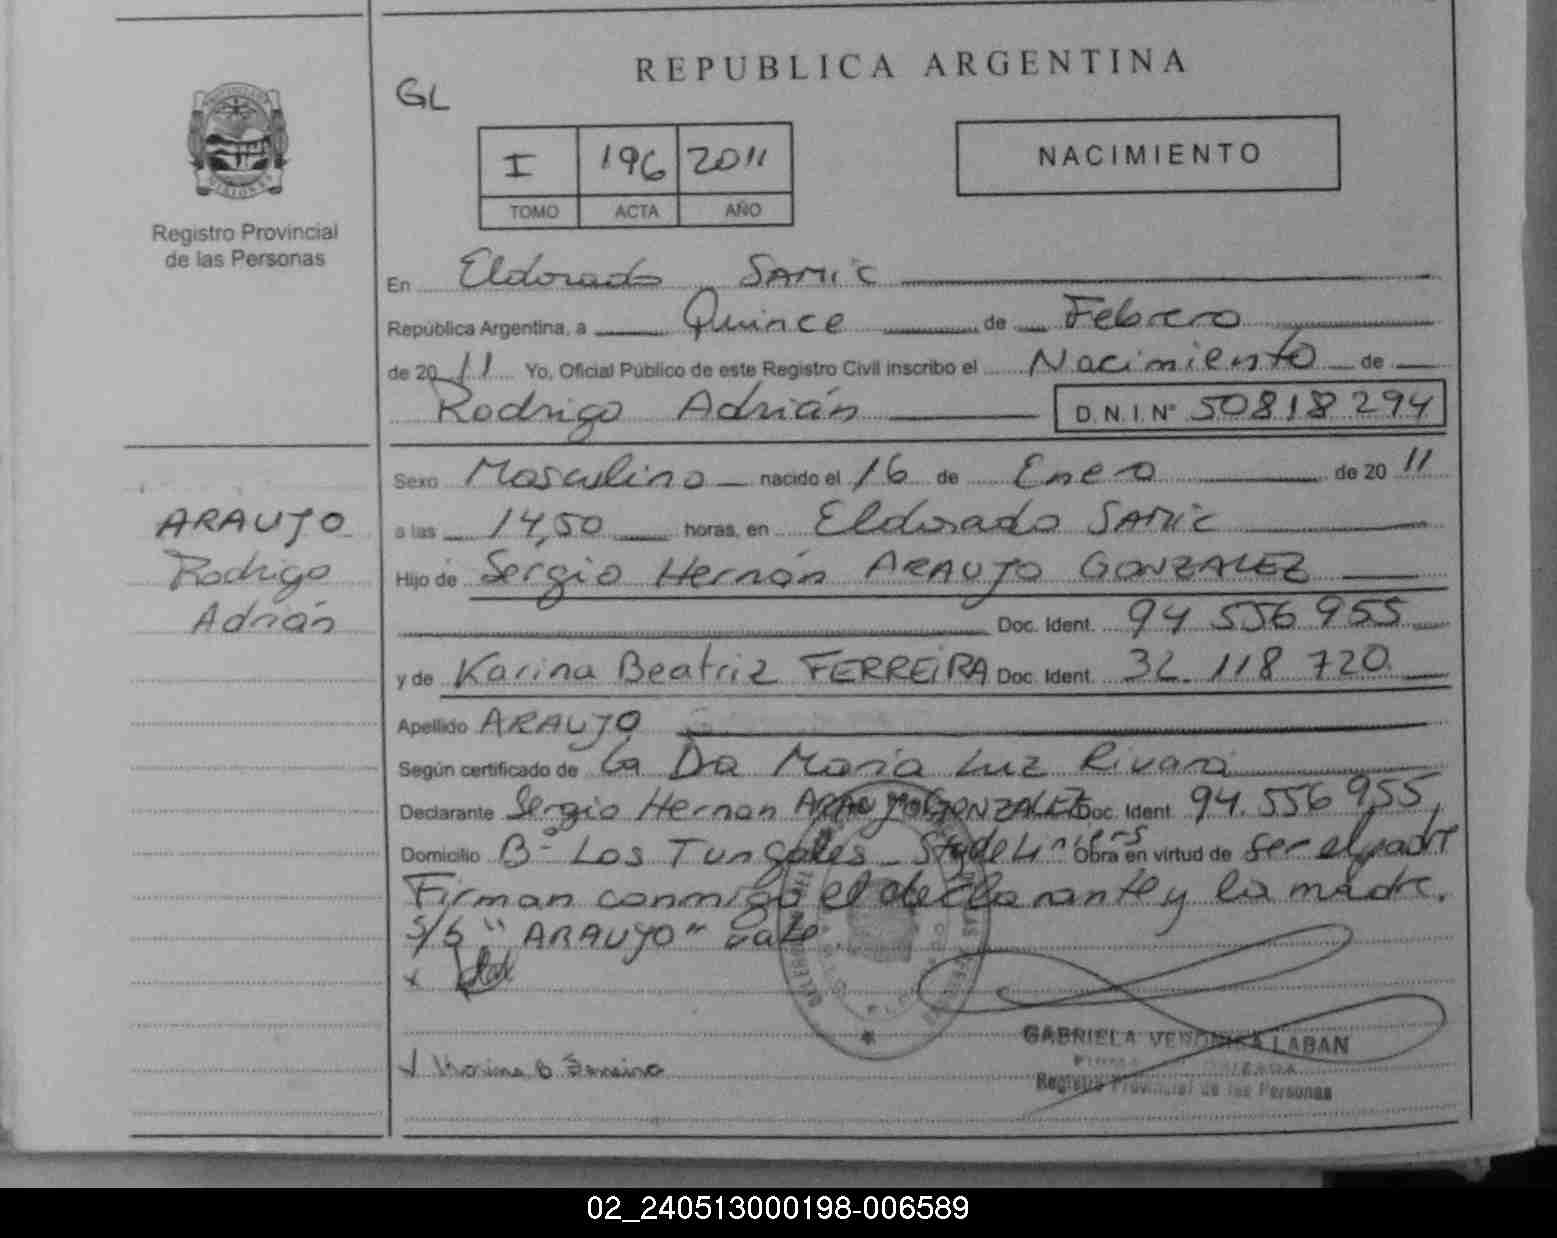 REPUBLICA ARGENTINA
GL
I 196 2011
TOMO ACTA AÑO
NACIMIENTO
Registro Provincial
de las Personas
En Eldorado SAMIC
República Argentina, a Quince de Febrero
de 2011 Yo, Oficial Público de este Registro Civil inscribo el Nacimiento de
Rodrigo Adrián D.N.I. N° 50818294
Sexo Masculino nacido el 16 de Enero de 2011
a las 14,50 horas, en Eldorado SAMIC
Hijo de Sergio Hernán ARAUJO GONZALEZ
Doc. Ident. 94 556 955
y de Karina Beatriz FERREIRA Doc. Ident. 32 118 720
Apellido ARAUJO
Según certificado de la Dra Maria Luz Rivara
Declarante Sergio Hernan ARAUJO GONZALEZ Doc. Ident. 94.556 955,
Domicilio B° Los Tungales - Obra en virtud de ser el padre
Firman conmigo el declarante y la madre.
S/b "ARAUYO" vale
x
Karina B Ferreira
ARAUJO
Rodrigo
Adrián
GABRIELA VERONICA LABAN
FIRMA AUTORIZADA
Registro Provincial de las Personas
02_240513000198-006589